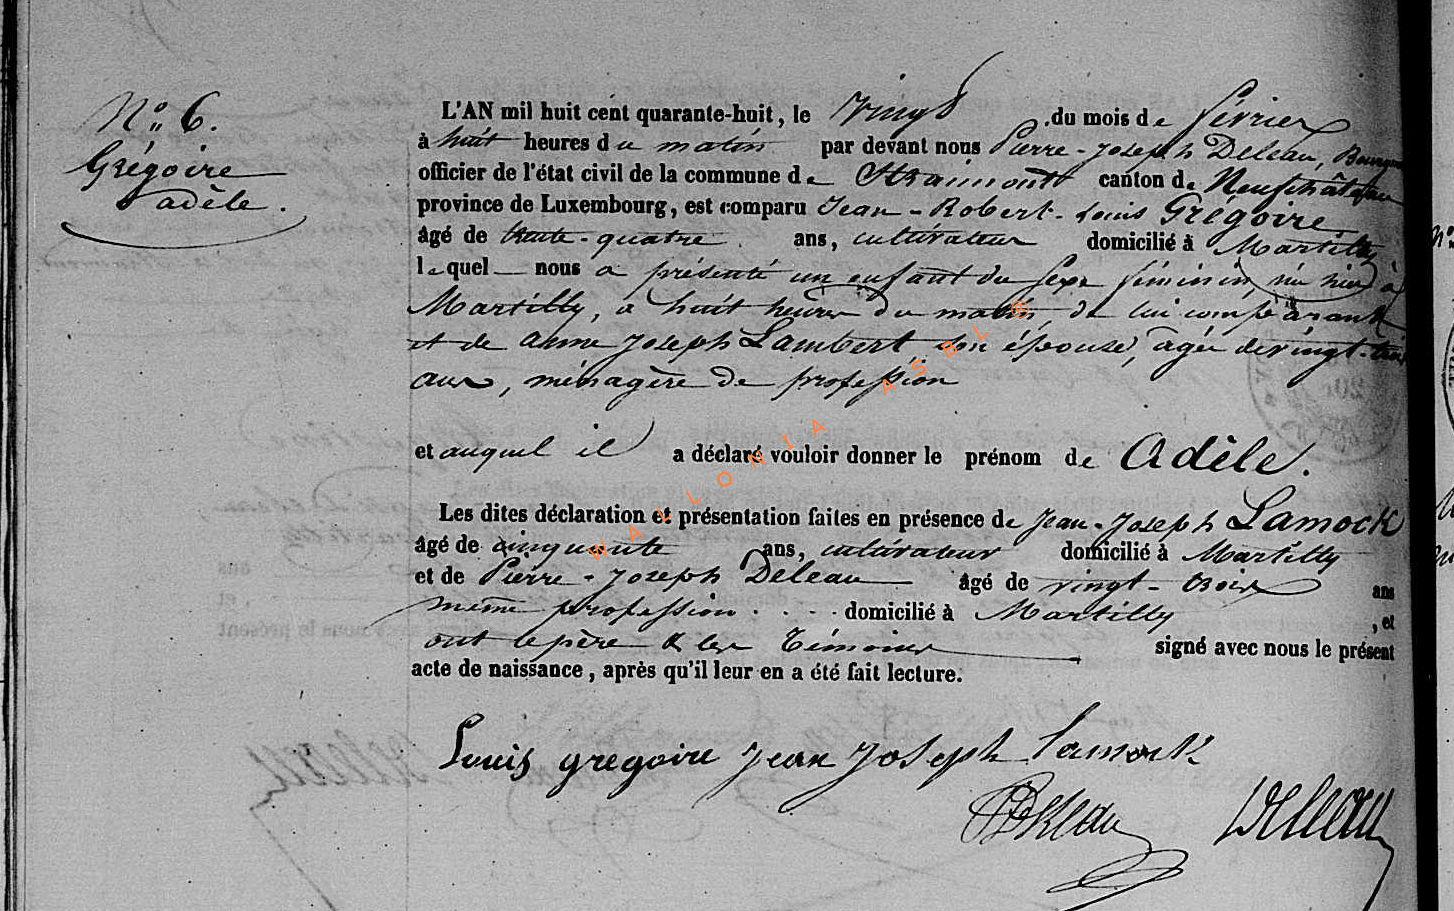 N° 6.
Grégoire
adèle.
L'AN mil huit cent quarante-huit, le Vingt du mois de février
à huit heures du matin par devant nous Pierre-Joseph Deleau, Bourgme
officier de l'état civil de la commune de Straimont canton de Neufchâteau
province de Luxembourg, est comparu Jean-Robert-Louis Grégoire
âgé de trente-quatre ans, cultivateur domicilié à Martilly
lequel nous a présenté un enfant du sexe féminin, né hier à
Martilly, à huit heures du matin, de lui comparant
et de anne Joseph Lambert son épouse, agée de vingt-trois
ans, ménagère de profession
et auquel il a déclaré vouloir donner le prénom de Adèle.
Les dites déclaration et présentation faites en présence de Jean-Joseph Lamock
âgé de cinquante ans, cultivateur domicilié à Martilly
et de Pierre-Joseph Deleau âgé de vingt-trois ans
même profession domicilié à Martilly , et
ont le père & les témoins signé avec nous le présent
acte de naissance, après qu'il leur en a été fait lecture.
Louis gregoire Jean Joseph Lamock
Deleau Deleau
WALLONIA ASBL ©